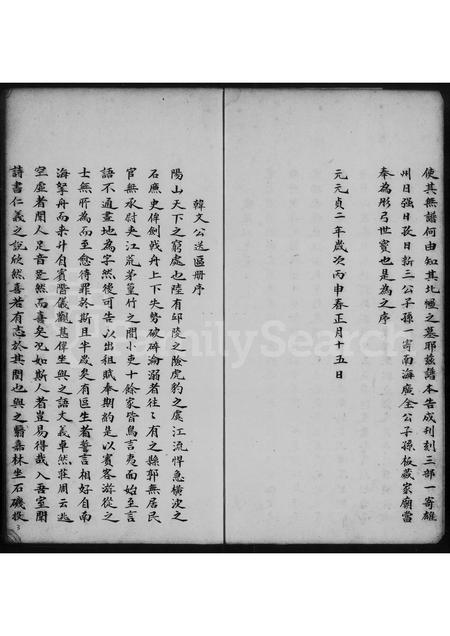 使其無譜何由知其北墟之墓耶兹譜本告成刊刻三部一寄雄
州日强日孜日新三公子孫一寄南海廣全公子孫板藏家廟當
奉為彤弓世寳也是為之序
元元貞二年歲次丙申春正月十五日
韓文公送區册序
陽山天下之窮處也陸有邱陵之險虎豹之虞江流悍急橫波之
石廉史俾劍戟舟上下失勢破碎淪溺者往〻有之縣郭無居民
官無丞尉夾江荒茅篁竹之間小吏十餘家皆鳥言夷面始至言
語不通畫地為字然後可告以出租賦奉期約是以賓客游從之
士無所為而至愈待罪於斯且半歲矣有區生者誓言相好自南
海挐舟而来升自賓階儀觀甚偉坐與之語文義卓然莊周云逃
空虛者聞人足音跫然而喜矣况如斯人者豈易得哉入吾室聞
詩書仁義之說欣然喜若有志於其間也與之翳嘉林坐石磯投
FamilySearch